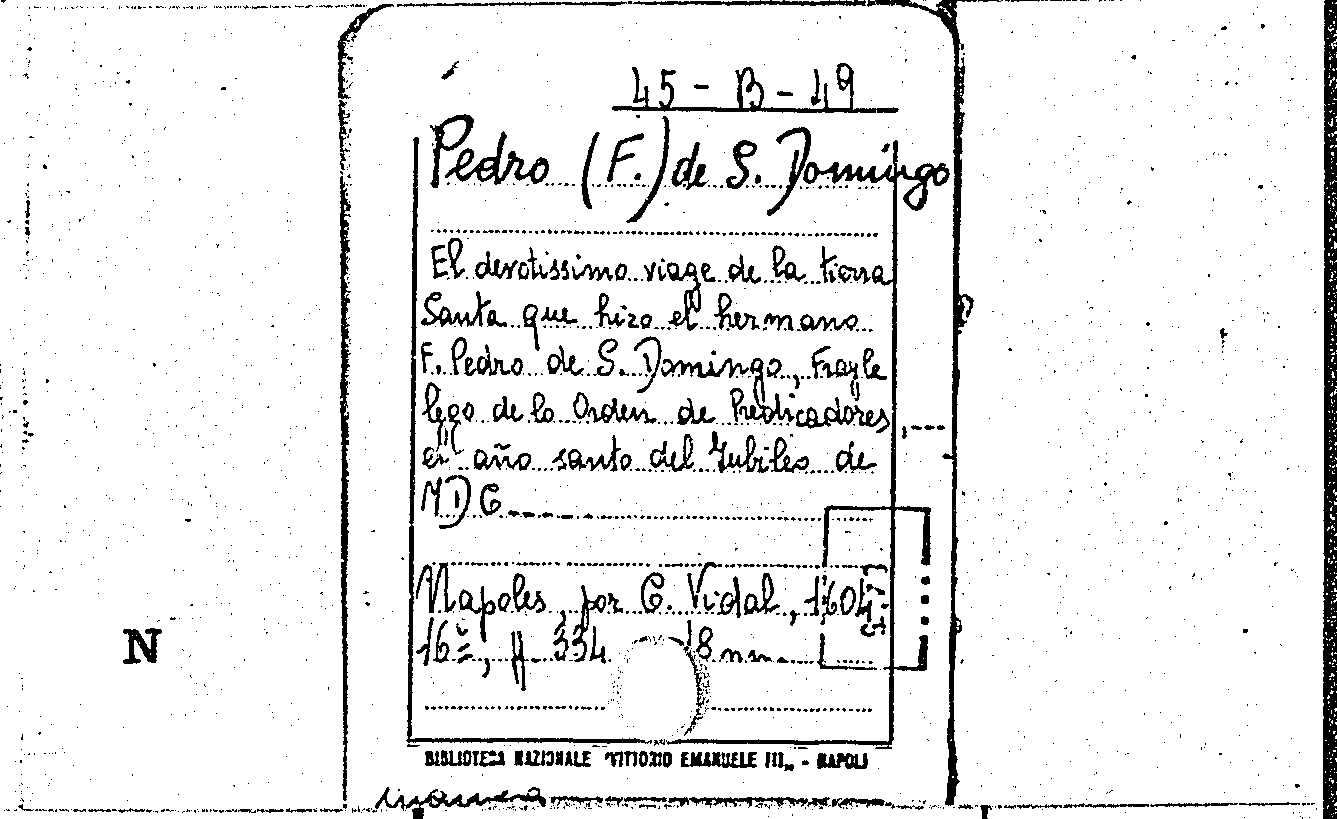 45 - B - 49
Pedro (F.) de S. Domingo
El devotissimo viage de la tierra
Santa que hizo el hermano
F. Pedro de S. Domingo, Frayle
lego de lo Orden de Predicadores
el año santo del Iubileo de
MDC
Napoles, por C. Vidal, 1604
16º, pp. 334 18 nn.
N
BIBLIOTECA NAZIONALE "VITTORIO EMANUELE III„ - NAPOLI